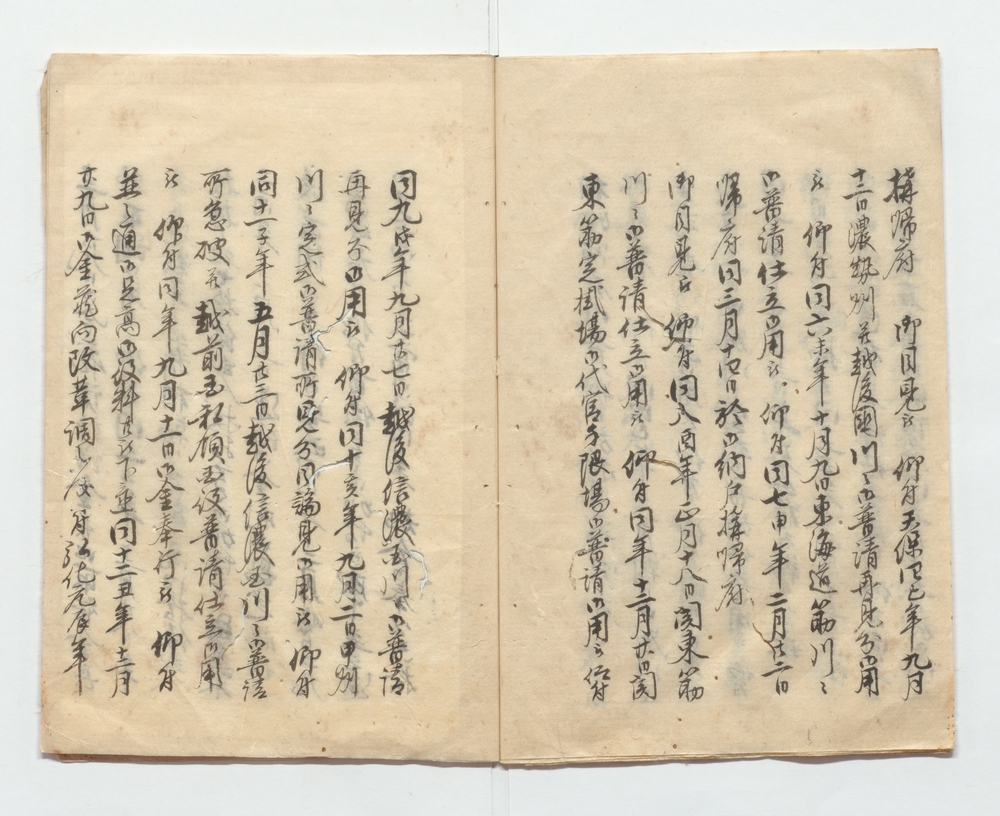 構帰府 御目見被 仰付天保四巳年九月
十二日濃勢州并越後国川々御普請再見分御用
被 仰付同六未年十月九日東海道筋川々
御普請仕立御用被 仰付同七申年二月廿二日
帰府同三月十四日於御納戸構帰府
御目見被 仰付同八酉年正月十八日関東筋
川々御普請仕立御用被 仰付同年十二月廿日関
東筋定掛場御代官手限場御普請御用被仰付
同九戌年九月廿七日越後信濃国川々御普請
再見分御用被 仰付同十亥年九月二日甲州
川々定式御普請所見分同論見御用被 仰付
同十一子年五月廿三日越後信濃国川々御普請
所急破并越前国私領国役普請仕立御用
被 仰付同年九月十一日御金奉行被 仰付
並之通御足高御役料共被下置同十二丑年十二月
廿九日御金蔵向改革調